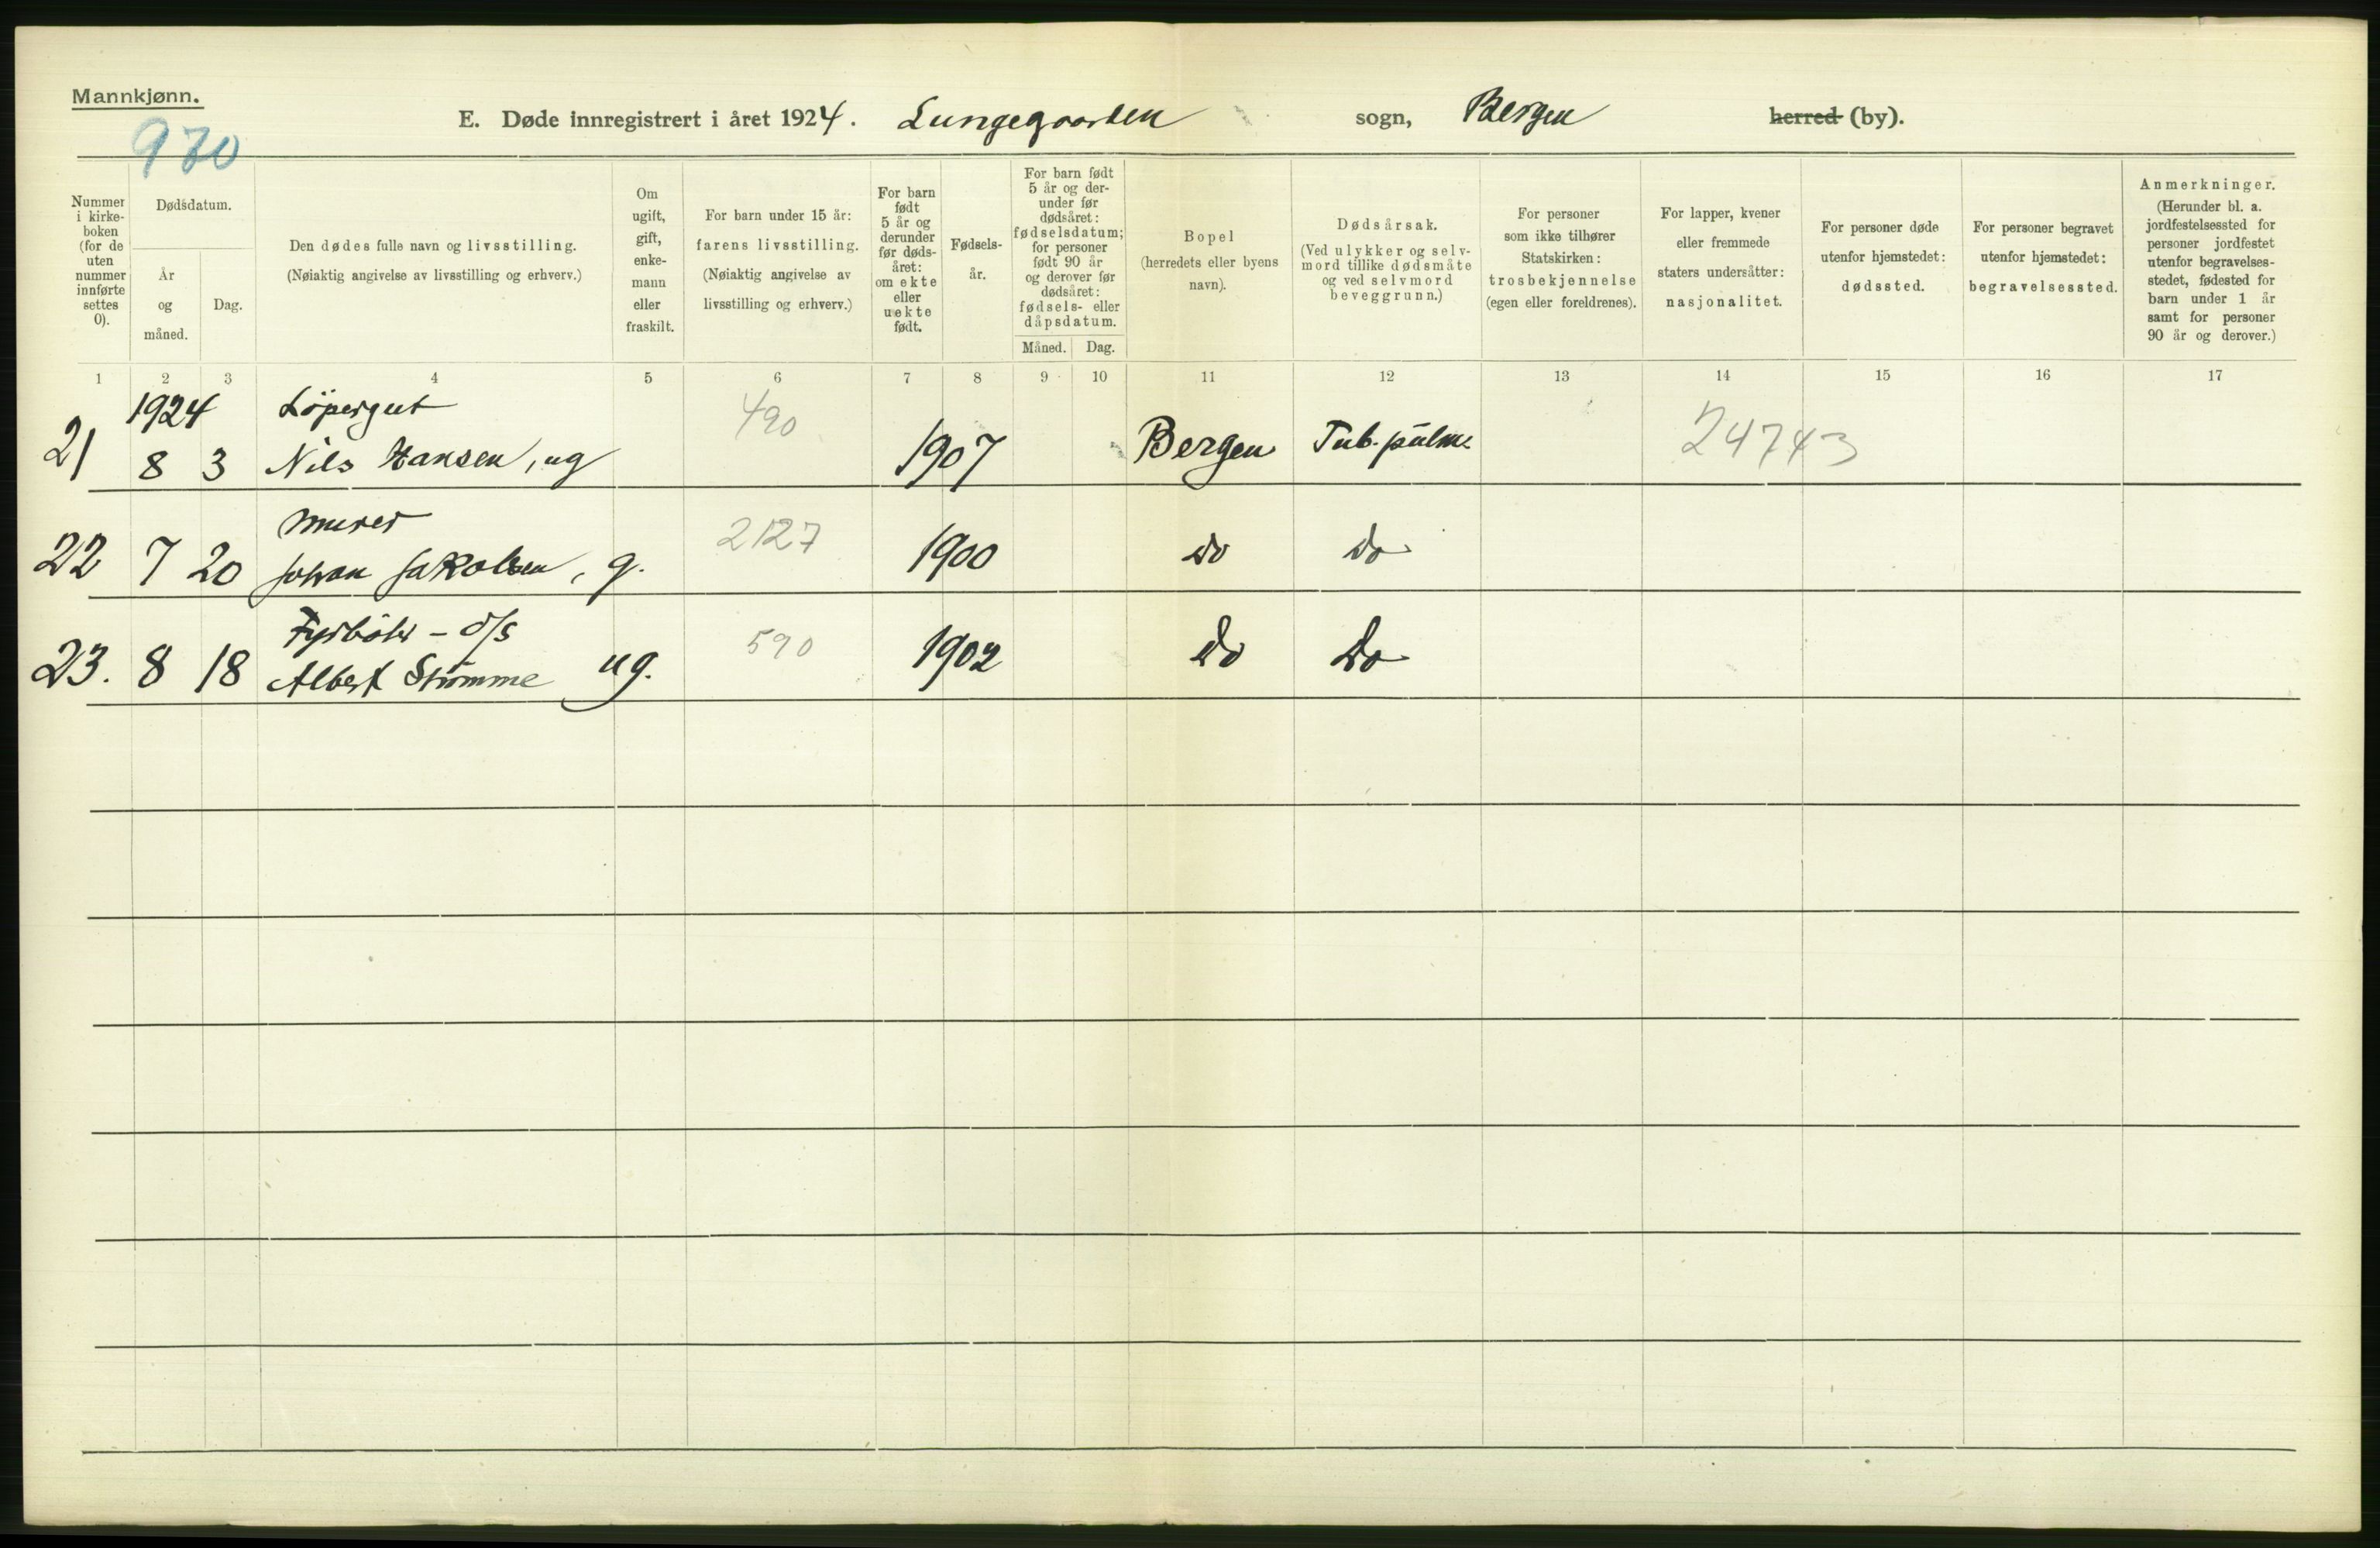 Mannkjønn.
970
E. Døde innregistrert i året 1924. Lungegaarden sogn, Bergen herred (by).
Nummer i kirke- boken (for de uten nummer innførte settes 0).
Dødsdatum.
År og måned.
Dag.
Den dødes fulle navn og livsstilling.
(Nøiaktig angivelse av livsstilling og erhverv.)
Om ugift, gift, enke- mann eller fraskilt.
For barn under 15 år: farens livsstilling.
(Nøiaktig angivelse av livsstilling og erhverv.)
For barn født 5 år og derunder før døds- året: om ekte eller uekte født.
Fødsels- år.
For barn født 5 år og der- under før dødsåret: fødselsdatum; for personer født 90 år og derover før dødsåret: fødsels- eller dåpsdatum.
Måned. Dag.
Bopel (herredets eller byens navn).
Dødsårsak.
(Ved ulykker og selv- mord tillike dødsmåte og ved selvmord beveggrunn.)
For personer som ikke tilhører Statskirken: trosbekjennelse (egen eller foreldrenes).
For lapper, kvener eller fremmede staters undersåtter: nasjonalitet.
For personer døde utenfor hjemstedet: dødssted.
For personer begravet utenfor hjemstedet: begravelsessted.
Anmerkninger.
(Herunder bl. a. jordfestelsessted for personer jordfestet utenfor begravelses- stedet, fødested for barn under 1 år samt for personer 90 år og derover.)
1 2 3 4 5 6 7 8 9 10 11 12 13 14 15 16 17
1924 Löpergut 490
21 8 3 Nils Hansen, ug 1907 Bergen Tub. pulm 24743
Murer 2127
22 7 20 Johan Jakobsen, g. 1900 Do Do
Fyrböter - d/s 590
23. 8 18 Albert Strömme ug. 1902 Do Do